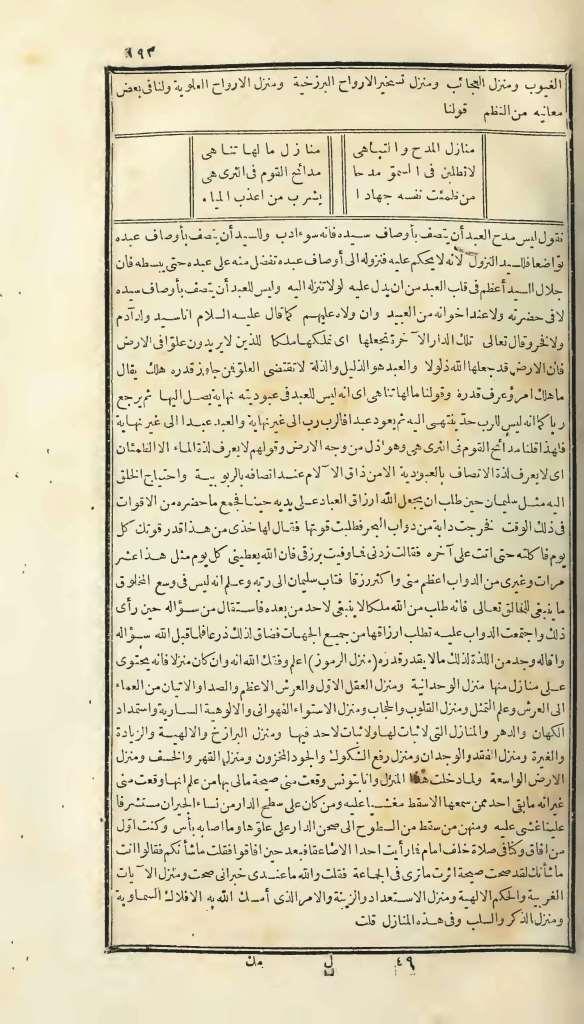 ١٩٣
الغيوب ومنزل العجائب ومنزل تسخير الارواح البرزخية ومنزل الارواح العلوية ولنا فى بعض
معانيه من النظم قولنا
منازل المدح والتباهى منازل مالها تناهى
لاتطلبن فى السمو مدحا مدائح القوم فى الثرى هى
من ظمئت نفسه جهادا يشرب من اعذب المياه
فنقول ليس مدح العبد أن يتصف بأوصاف سيده فانه سوء ادب وللسيد أن يتصف بأوصاف عبده
تواضعا فللسيد النزول لأنه لا يحكم عليه فنزوله الى أوصاف عبده تفضل منه على عبده حتى يبسطه فان
جلال السيد أعظم فى قلب العبد من ان يدل عليه لولا تنزله اليه وليس للعبد أن يتصف بأوصاف سيده
لا فى حضرته ولا عند اخوانه من العبيد وان ولاه عليهم كما قال عليه السلام انا سيد ولد آدم
ولا فخر وقال تعالى تلك الدار الآخرة نجعلها اى نملكها ملكا للذين لا يريدون علوا فى الارض
فان الارض قد جعلها الله ذلولا والعبد هو الذليل والذلة لا تقتضى العلو فمن جاوز قدره هلك يقال
ما هلك امرؤ عرف قدره وقولنا مالها تناهى اى انه ليس للعبد فى عبوديته نهاية يصل اليها ثم يرجع
ربا كما انه ليس للرب حد ينتهى اليه ثم يعود عبدا فالرب رب الى غير نهاية والعبد عبد الى غير نهاية
فلهذا قلنا مدائح القوم فى الثرى هى وهو اذل من وجه الارض وقولهم لا يعرف لذة الماء الا الظمئان
اى لا يعرف لذة الاتصاف بالعبودية الا من ذاق الآلام عند اتصافه بالربوبية واحتياج الخلق
اليه مثل سليمان حين طلب ان يجعل الله ارزاق العباد على يديه حينا فجمع ما حضره من الاقوات
فى ذلك الوقت فخرجت دابة من دواب البحر فطلبت قوتها فقال لها خذى من هذا قدر قوتك كل
يوم فاكلته حتى اتت على آخره فقالت زدنى فما وفيت برزقى فان الله يعطينى كل يوم مثل هذا عشر
مرات وغيرى من الدواب اعظم منى واكثر رزقا فتاب سليمان الى ربه وعلم انه ليس فى وسع المخلوق
ما ينبغى للخالق تعالى فانه طلب من الله ملكا لا ينبغى لاحد من بعده فاستقال من سؤاله حين رأى
ذلك واجتمعت الدواب عليه تطلب ارزاقها من جميع الجهات فضاق لذلك ذرعا فلما قبل الله سؤاله
واقاله وجد من اللذة لذلك ما لا يقدر قدره (منزل الرموز) اعلم وفقك الله انه وان كان منزلا فانه يحتوى
على منازل منها منزل الوحدانية ومنزل العقل الاول والعرش الاعظم والصدا والاتيان من العماء
الى العرش وعلم التمثل ومنزل القلوب والحجاب ومنزل الاستواء الفهوانى والالوهية السارية واستمداد
الكهان والدهر والمنازل التى لا ثبات لها ولا ثبات لاحد فيها ومنزل البرازخ والالهية والزيادة
والغيرة ومنزل الفقد والوجدان ومنزل رفع الشكوك والجود المخزون ومنزل القهر والخسف ومنزل
الارض الواسعة ولما دخلت هذا المنزل وانا بتونس وقعت منى صيحة مالى بها من علم انها وقعت منى
غير انه ما بقى احد ممن سمعها الا سقط مغشيا عليه ومن كان على سطح الدار من نساء الجيران مستشرفا
علينا غشى عليه ومنهن من سقط من السطوح الى صحن الدار على علوها وما اصابه بأس وكنت اول
من افاق وكنا فى صلاة خلف امام فما رأيت احدا الا صاعقا فبعد حين افاقوا فقلت ما شأنكم فقالوا انت
ما شأنك لقد صحت صيحة اثرت ما ترى فى الجماعة فقلت والله ما عندى خبر انى صحت ومنزل الآيات
الغريبة والحكم الالهية ومنزل الاستعداد والزينة والامر الذى أمسك الله به الافلاك السماوية
ومنزل الذكر والسلب وفى هذه المنازل قلت
٤٩ ل مك